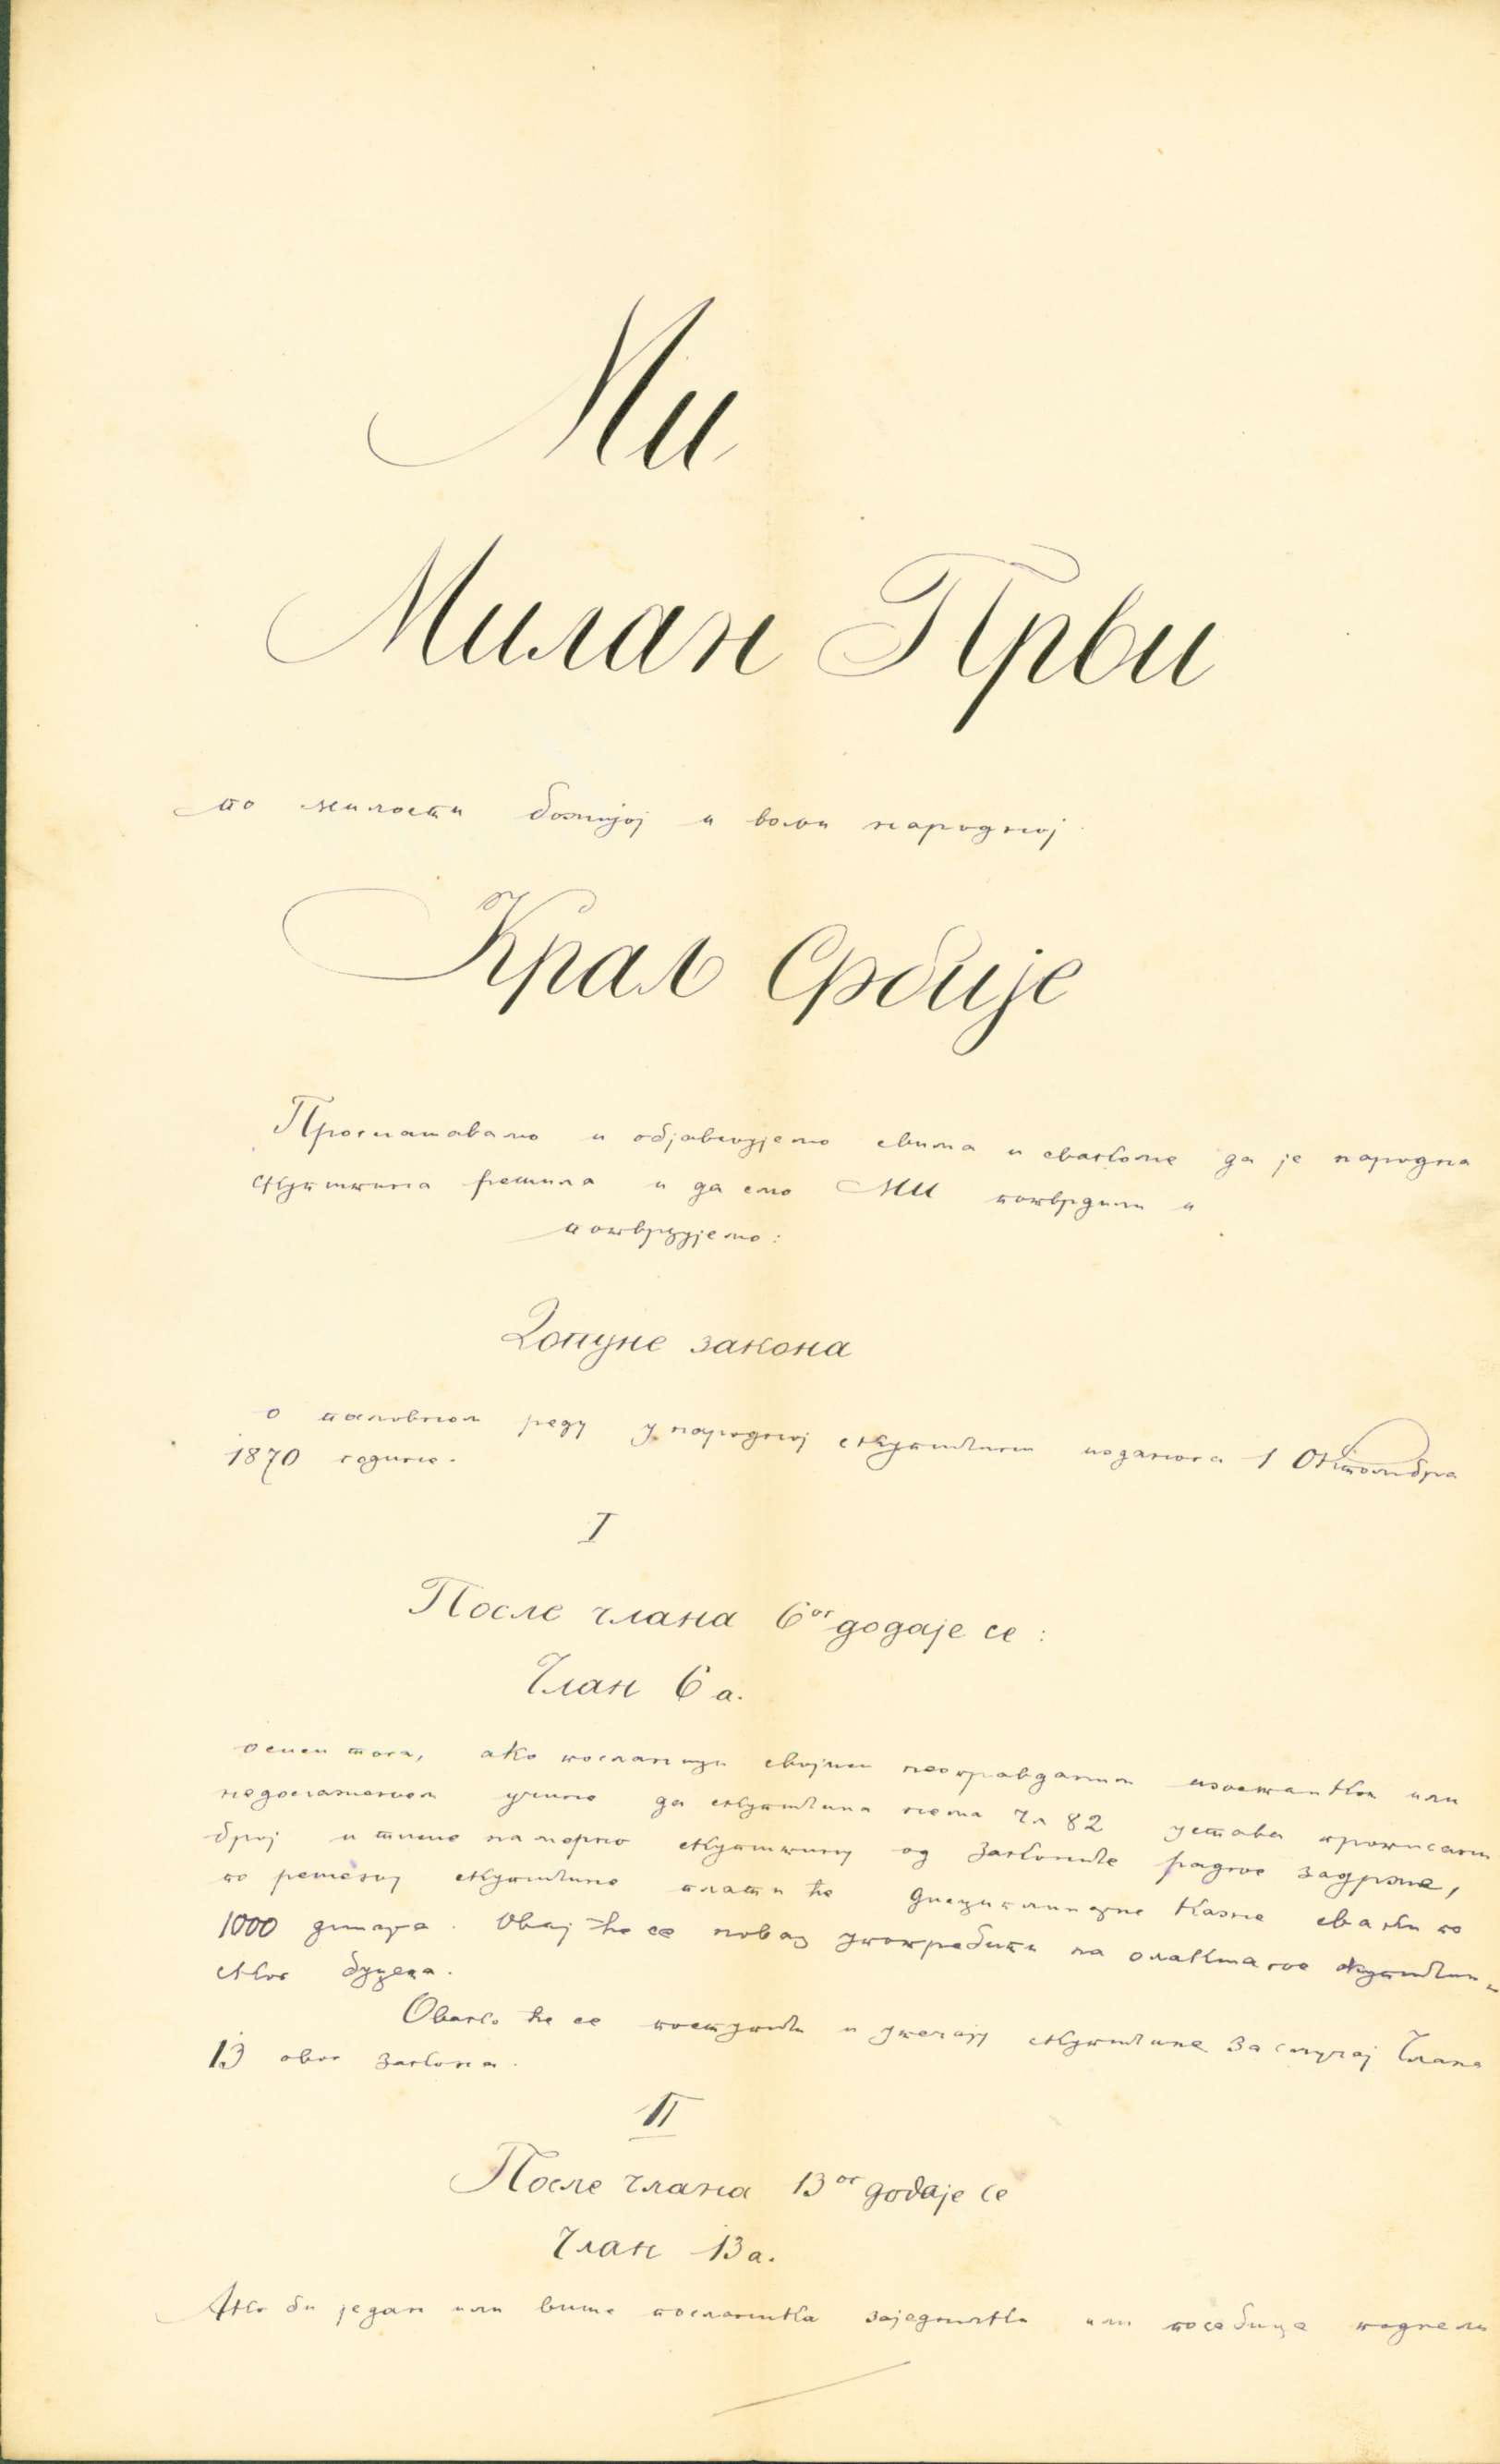 Ми
Милан Први
по милости божијој и вољи народној
Краљ Србије
Проглашавамо и објављујемо свима и свакоме да је народна
скупштина решила и да смо МИ потврдили и
потврђујемо:
Допуне закона
о пословном реду у народној скупштини изданога 1 Октомбра
1870 године.
I
После члана 6ог додаје се:
Члан 6 а.
осем тога, ако посланици својим неоправданим изостанком или
недолажењем учине да скупштина нема чл 82 устава прописани
број и тиме намерно скупштину од законите радње задрже,
по решењу скупштине платиће дисциплинарне казне сваки по
1000 динара. Овај ће се новац употребити на олакшање скупштин-
ског буџета.
Овако ће се поступити и у течају скупштине за случај члана
13 овог закона.
II
После члана 13ог додаје се
Члан 13 а.
Ако би један или више посланика заједнички или посебице поднели